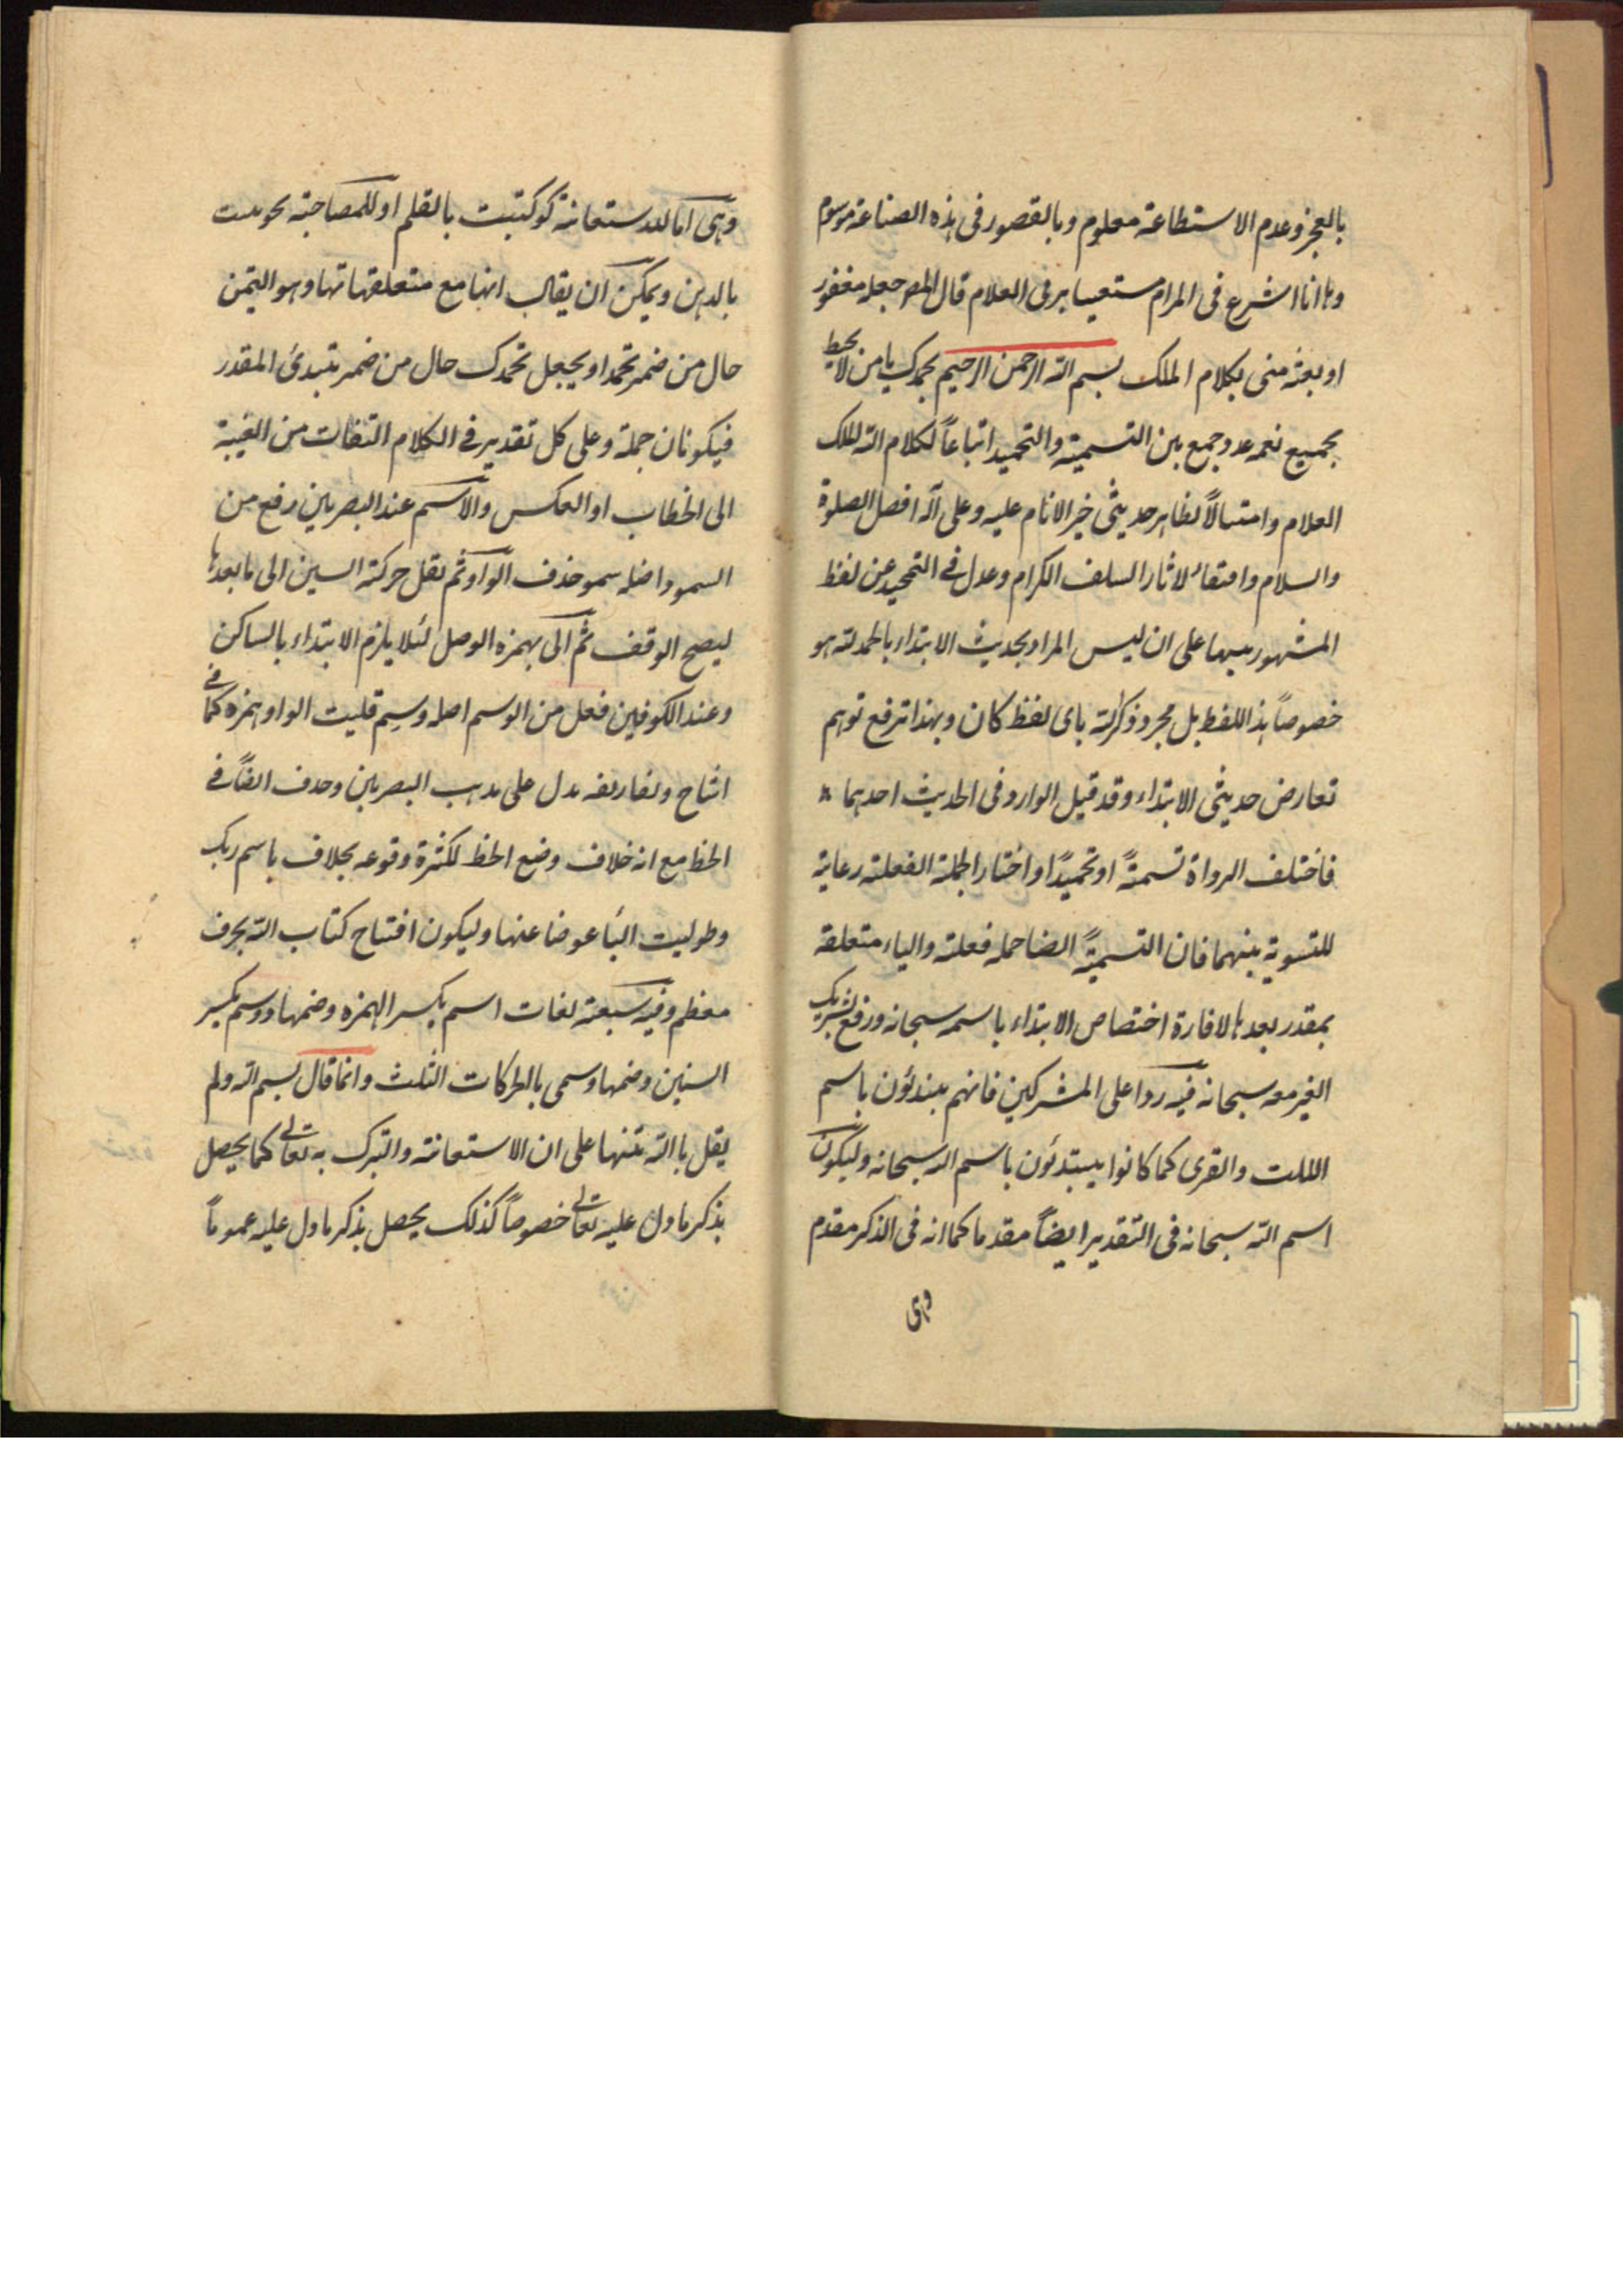 بالعجز وعدم الاستطاعة معلوم وبالقصور فى هذه الصناعة موسوم
وها انا اشرع فى المرام مستعينا بربى العلام قال المص جعله مغفور
او بعثه منى بكلام الملك بسم الله الرحمن الرحيم نحمدك يا من لا يحيط
بجميع نعمه عد وجمع بين التسمية والتحميد اتباعاً لكلام الله الملك
العلام وامتثالاً لظاهر حديثى خير الانام عليه وعلى آله افضل الصلوة
والسلام واقتفاء لاثار السلف الكرام وعدل فى التحميد عن لفظ
المشهور تنبيها على ان ليس المراد بحديث الابتداء بالحمد لله هو
خصوصاً هذا اللفظ بل مجرد ذكر الله باى لفظ كان وبهذا ترفع توهم
تعارض حديثى الابتداء وقد قيل الوارد فى الحديث احدهما
فاختلف الرواة تسميةً او تحميدًا واختار الجملة الفعلية رعاية
للتسوية بينهما فان التسميةً ايضا جملة فعلية والباء متعلقة
بمقدر بعدها لافادة اختصاص الابتداء باسمه سبحانه ورفع لشريك
الغير معه سبحانه فيه ردا على المشركين فانهم يبتدئون باسم
اللات والعزى كما كانوا يبتدئون باسم الله سبحانه وليكون
اسم الله سبحانه فى التقدير ايضاً مقدما كما انه فى الذكر مقدم
وهى
وهى اما للاستعانة نحو كتبت بالقلم او للمصاحبة نحو نبت
بالدهن ويمكن ان يقال انها مع متعلقها تها وهو التيمن
حال من ضمير نحمد او يجعل نحمدك حال من ضمير نبتدئ المقدر
فيكونان جملة وعلى كل تقدير فى الكلام التفات من الغيبة
الى الخطاب او العكس والاسم عند البصريين رفع من
السمو واصله سمو حذف الواو ثم نقل حركة السين الى ما بعدها
ليصح الوقف ثم اتى بهمزه الوصل لئلا يلزم الابتداء بالساكن
وعند الكوفيين فعل من الوسم اصله وسم قلبت الواو همزه كما فى
اشاح وتصاريفه يدل على مذهب البصريين وحذف الفاً فى
الخط مع انه خلاف وضع الخط لكثرة وقوعه بخلاف باسم ربك
وطوليت الباً عوضا عنها وليكون افتتاح كتاب الله بحرف
معظم وفيه سبعة لغات اسم بكسر الهمزه وضمها ووسم بكسر
السين وضمها وسمى بالحركات الثلث وانما قال بسم الله ولم
يقل بالله تنبها على ان الاستعانة والتبرك به تعالى كما يحصل
بذكر ما دل عليه تعالى خصوصاً كذلك يحصل بذكر ما دل عليه عموماً